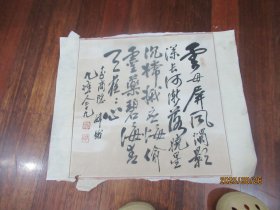 雲母屏風燭影
深長河漸落曉星
沉嫦娥應悔偷
靈藥碧海青
天夜々心
李商隱